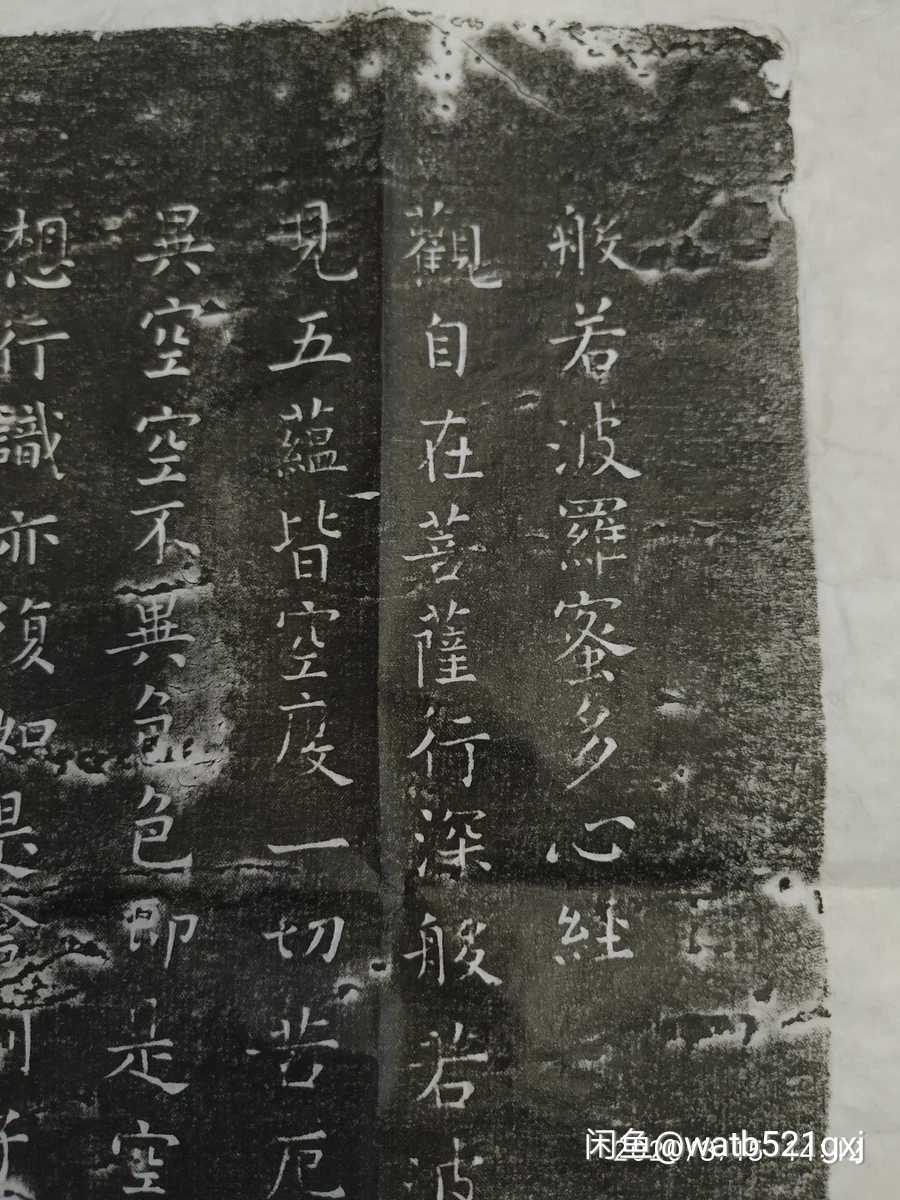 般若波羅蜜多心經
觀自在菩薩行深般若波
見五蘊皆空度一切苦厄
異空空不異色色即是空
想行識亦復如是舍利子
闲鱼@watb521gxj